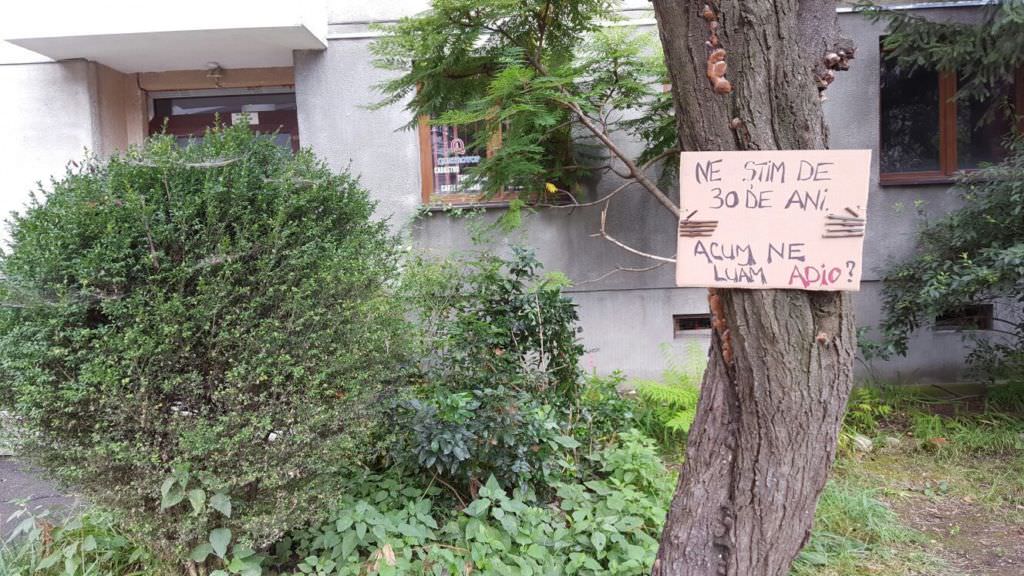 NE STIM DE
30 DE ANI.
ACUM NE
LUAM ADIO?